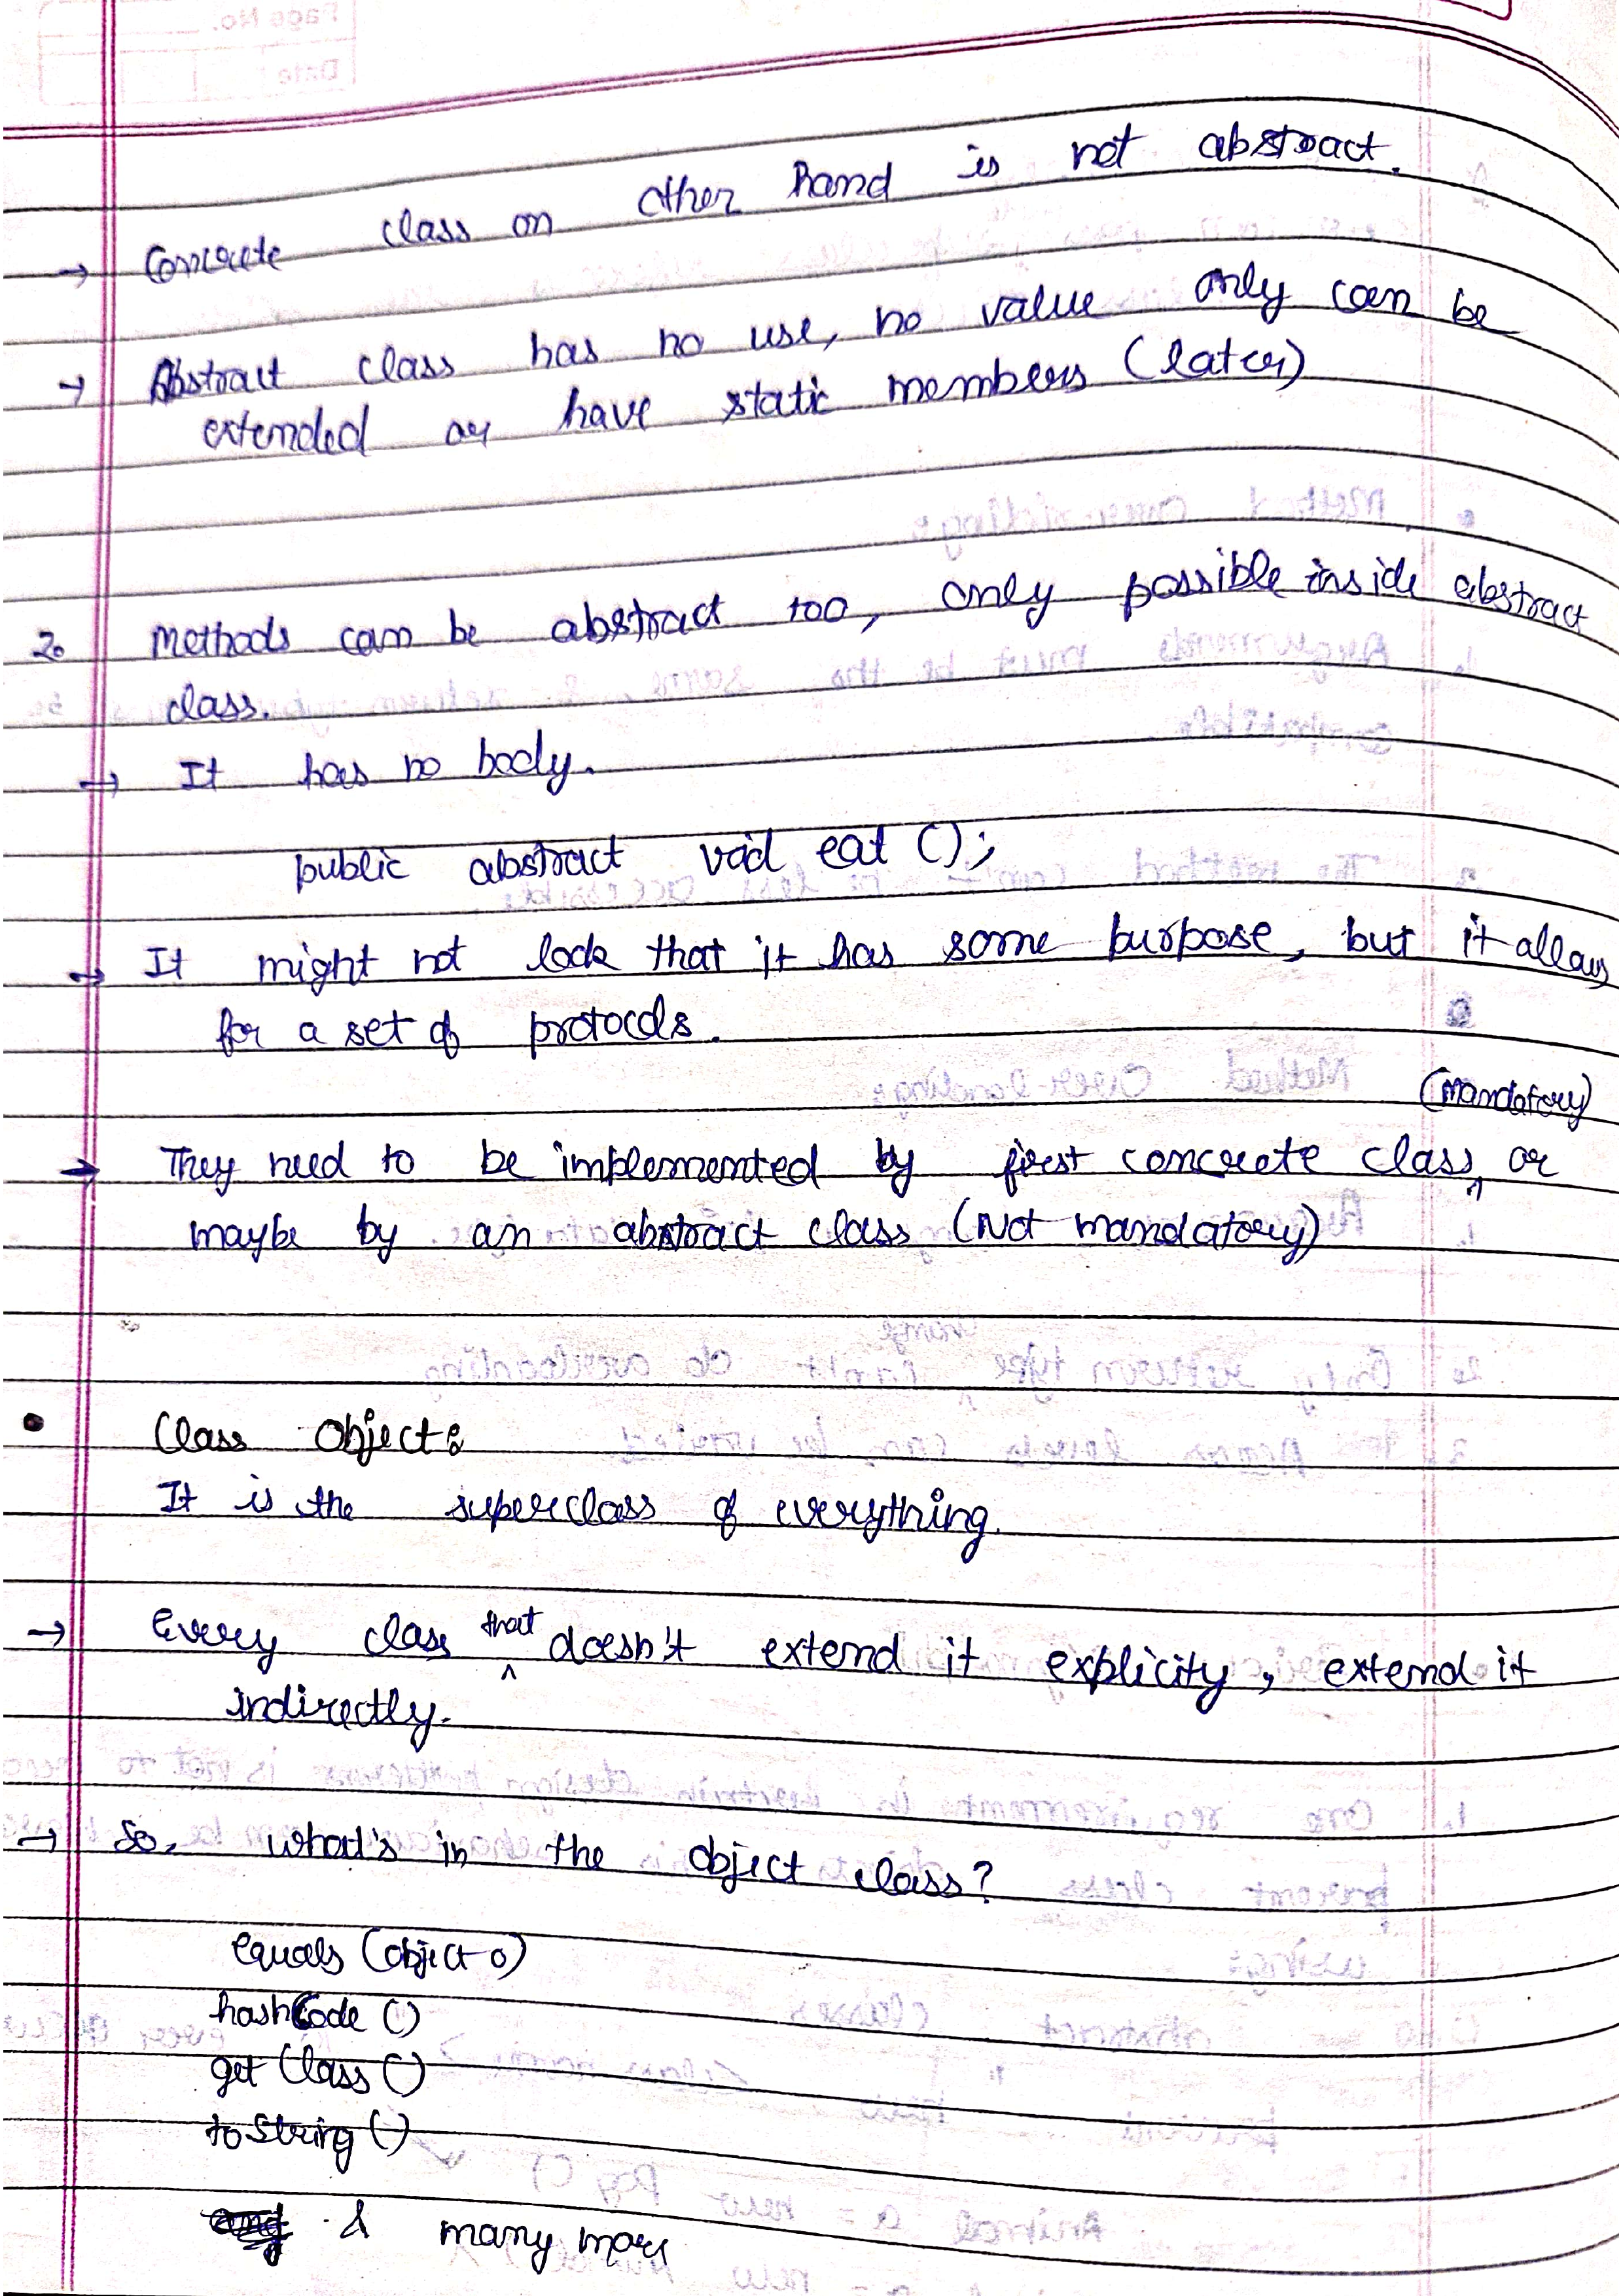 Page No.
Date
→ Concrete class on other hand is not abstract.
→ Abstract class has no use, no value only can be
extended or have static members (later)
2. Methods can be abstract too, only possible inside abstract
class.
→ It has no body.
public abstract void eat ();
→ It might not look that it has some purpose, but it allows
for a set of protocols.
(mandatory)
→ They need to be implemented by first concrete class ^ or
maybe by an abstract class (Not mandatory)
• Class Object:
It is the superclass of everything.
→ Every class ^that doesn't extend it explicity, extend it
indirectly.
→ So, what's in the object class?
equals (object o)
hashCode ()
get Class ()
to String ()
& many more